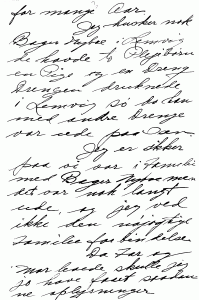 for mange Aar.
Jeg husker nok
Bager Nyboe i Lemvig
de havde to Plejebørn
en Pige og en Dreng
Drengen druknede
i Lemvig Sø da han
med andre Drenge
var ude paa Isen.
Jeg er sikker
paa vi var i Familie
med Bager Nyboe men
det var nok langt
ude, og jeg ved
ikke den nøjagtige
Familieforbindelse
Da Far
Mor levede skulde jeg
jo have faaet saadan
ne oplysninger